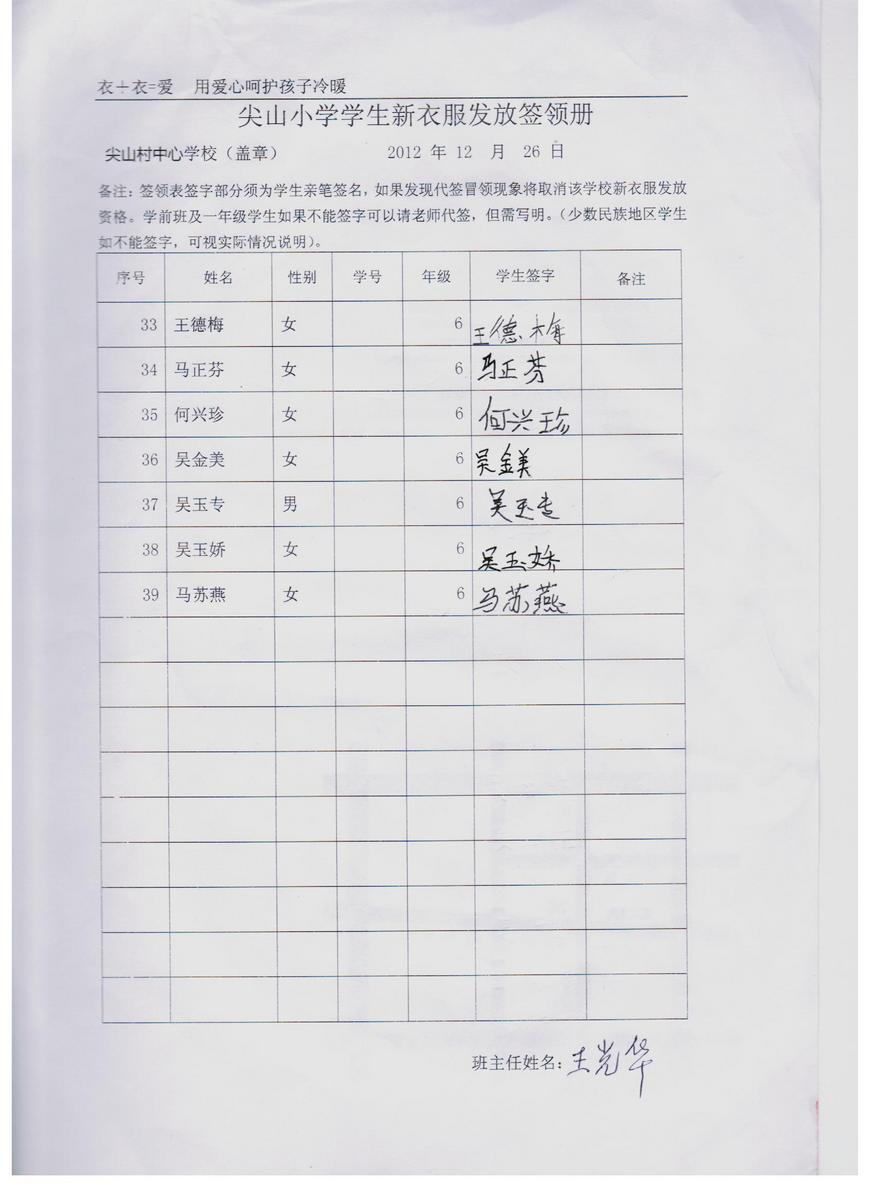 衣+衣=爱 用爱心呵护孩子冷暖
尖山小学学生新衣服发放签领册
尖山村中心学校（盖章） 2012 年 12 月 26 日
备注：签领表签字部分须为学生亲笔签名，如果发现代签冒领现象将取消该学校新衣服发放
资格。学前班及一年级学生如果不能签字可以请老师代签，但需写明。（少数民族地区学生
如不能签字，可视实际情况说明）。
序号 姓名 性别 学号 年级 学生签字 备注
33 王德梅 女 6 王德梅
34 马正芬 女 6 马正芬
35 何兴珍 女 6 何兴珍
36 吴金美 女 6 吴金美
37 吴玉专 男 6 吴玉专
38 吴玉娇 女 6 吴玉娇
39 马苏燕 女 6 马苏燕
班主任姓名：王光华